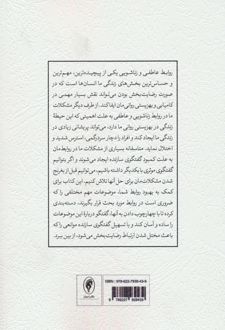 روابط عاطفی و زناشویی یکی از پیچیده‌ترین، مهم‌ترین
و حساس‌ترین بخش‌های زندگی ما انسان‌ها است که در
صورت رضایت‌بخش بودن می‌تواند نقش بسیار مهمی در
کامیابی و بهزیستی روانی‌مان ایفا کند. از طرف دیگر مشکلات
ما در روابط زناشویی و عاطفی به علت اهمیتی که این حیطهٔ
زندگی در بهزیستی روانی ما دارد، می‌تواند پریشانی زیادی در
زندگی ما ایجاد کند و افراد را دچار سردرگمی، استرس شدید و
اختلال نماید. متاسفانه بسیاری از مشکلات ما در روابط‌مان
به علت کمبود گفتگوی سازنده ایجاد می‌شوند و اگر بتوانیم
گفتگوی موثری با یکدیگر داشته باشیم، می‌توانیم قبل از بغرنج
شدن مشکلات‌مان برای حل آنها تلاش کنیم. این کتاب برای
کمک به بهبود روابط شما، موضوعات مهم مختلفی را که
ضروری است در روابط مورد بحث قرار بگیرند، دسته‌بندی
کرده تا با چهارچوب دادن به آنها، گفتگو دربارهٔ این موضوعات
را ساده و آسان کند و با تسهیل گفتگوی سازنده موانعی را که
باعث مختل شدن ارتباط رضایت‌بخش می‌شود، از بین ببرد.